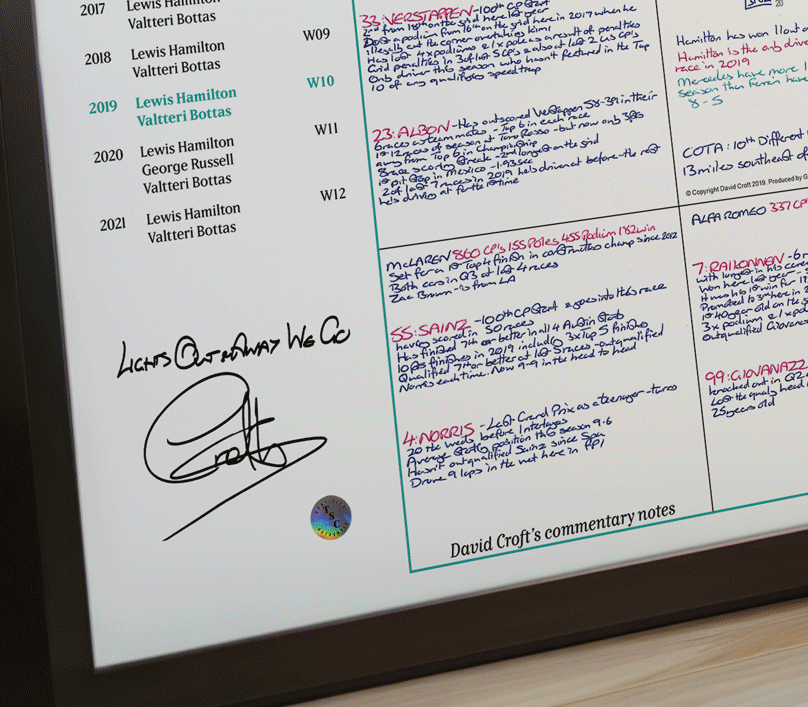 2017
Lewis Hamilton
Valtteri Bottas
2018
Lewis Hamilton
Valtteri Bottas
W09
2019
Lewis Hamilton
Valtteri Bottas
W10
2020
Lewis Hamilton
George Russell
Valtteri Bottas
W11
2021
Lewis Hamilton
Valtteri Bottas
W12
LIGHTS OUT AND AWAY WE GO
Crofty
TSC
33: VERSTAPPEN - 100th GP Start
2nd from 18th on the grid here last year
Lost a podium from 16th on the grid here in 2017 when he
illegally cut the corner overtaking Kimi
Has lost 4 x podiums & 1 x pole as a result of penalties
Grid penalties in 3 of last 5 GP's & also at last 2 US GP's
Only driver this season who hasn't featured in the Top
10 of any qualifying speed trap
23: ALBON - Has outscored Verstappen 58-39 in their
6 races as team mates - Top 6 in each race
1st 12 races of season at Toro Rosso - but now only 3pts
away from Top 6 in Championship
8 race scoring streak - 2nd longest on the grid
1st pit stop in Mexico - 1.93 sec
2 of last 7 races in 2019 he's driven at before - the rest
he's driving at for the 1st time
McLAREN 860 GP's 155 Poles 485 Podium 182 win
Set for a 1st Top 4 finish in constructors champ since 2012
Both cars in Q3 at last 4 races
Zac Brown - is from LA
55: SAINZ - 100th GP Start & goes into this race
having scored in 50 races
Has finished 7th or better in all 4 Austin starts
10 pts finishes in 2019 including 3 x Top 5 finishes
Qualified 7th or better at last 5 races - outqualified
Norris each time. Now 9-9 in the head to head
4: NORRIS - Last Grand Prix as a teenager - turns
20 the weds before Interlagos
Average Qually position this season 9.6
Hasn't outqualified Sainz since Spa
Drove 9 laps in the wet here in FP1
David Croft's commentary notes
20
Hamilton has won 1 out o
Hamilton is the only drive
race in 2019
Mercedes have more 1
season than Ferrari have
8 - 5
COTA: 10th Different
13 miles southeast of
© Copyright David Croft 2019. Produced by G
ALFA ROMEO 337 GP'
7: RAIKONNEN - 6
Won here last year
3 x podium & 1 x pol
Outqualified Giovina
99: GIOVANAZZ
knocked out in Q2
Lost the qually head
25 years old